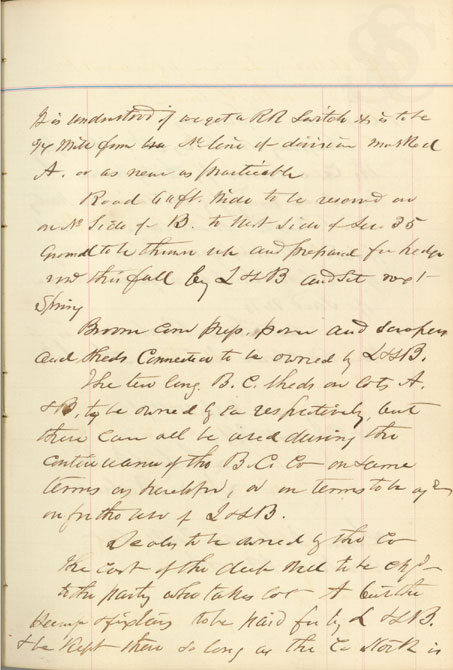 It is understood if we get a RR Switch it is to be
1/4 Mile from No line of division marked
A. or as near as practicable
Road 60 ft. wide to be reserved on
on No Side of B. to West Side of Sec 35
Ground to be thrown up and prepared for hedge
row this fall by L & B and Set next
Spring
Broom corn press. power and scrapers
and sheds Connected to be owned by L & B.
The two long B. C. sheds on lots A.
& B. to be owned by Ea respectively, but
there can all be used during the
continuance of the B. C. Co on same
terms as heretofore, or on terms to be
on for the use of L & B.
to be owned by the Co
The cost of the deep well to be
to the party who takes lot A but the
Pump & fixtures to be paid for by L & B.
& be kept there so long as the Co Stock is